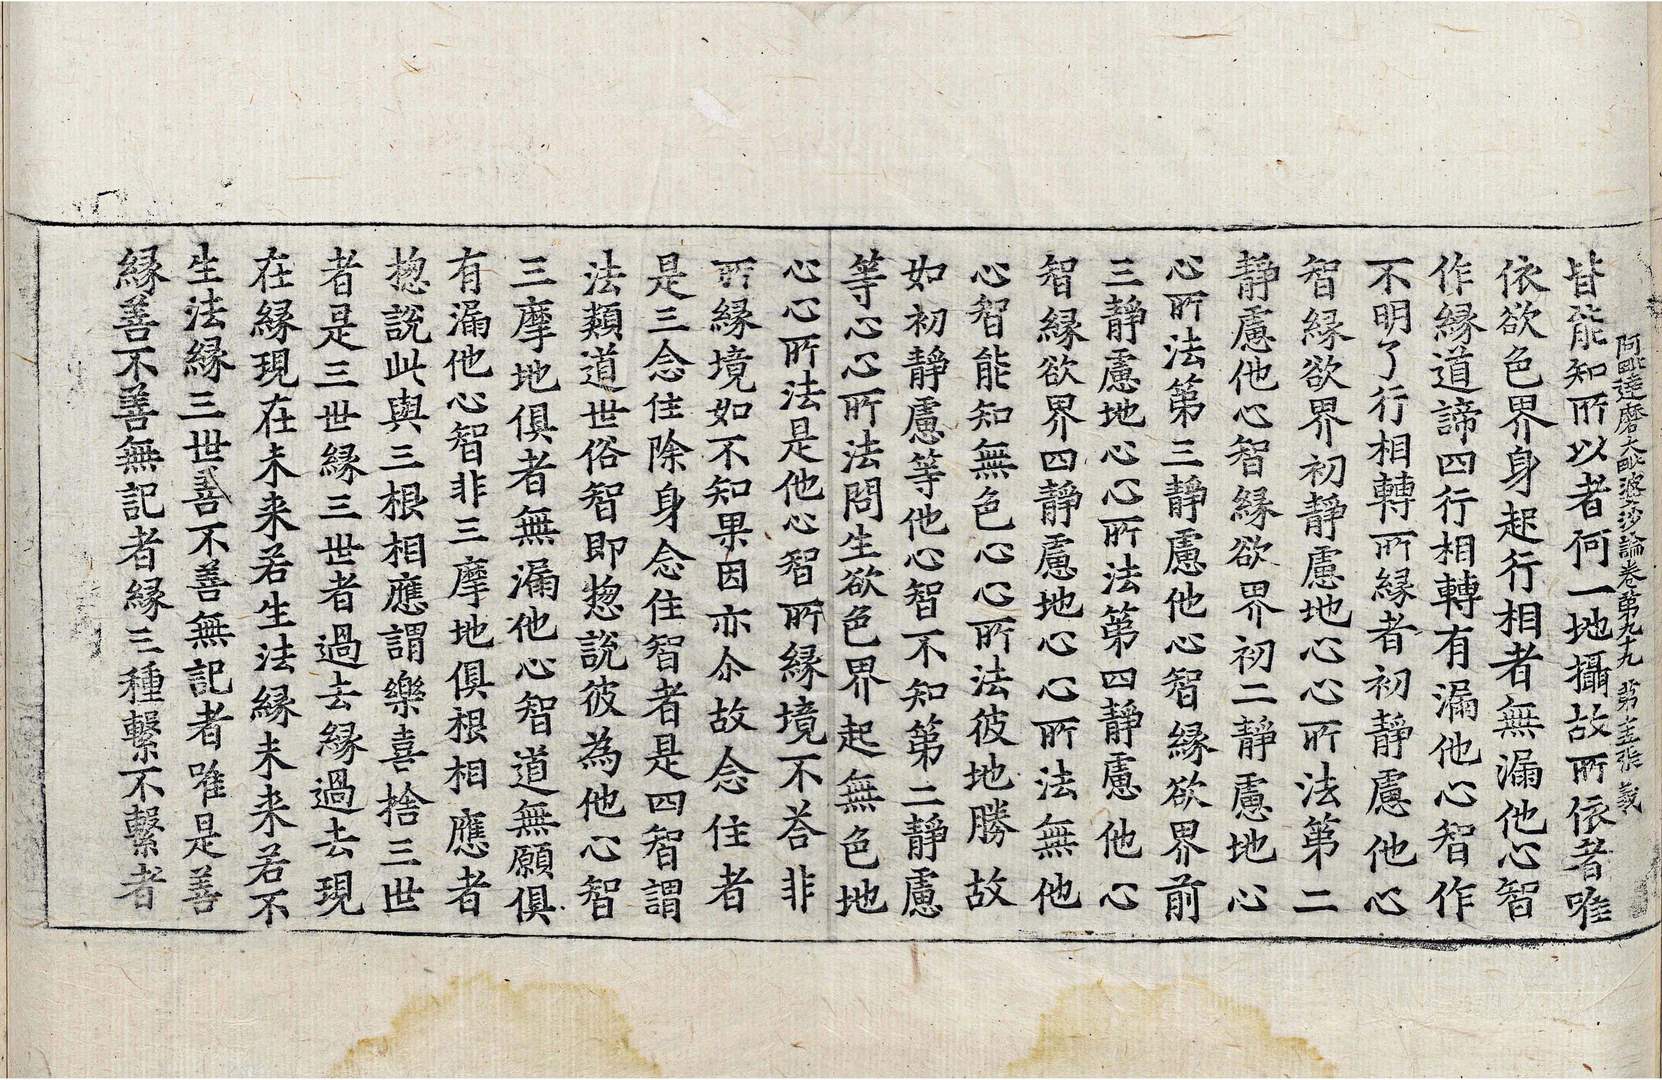 阿毗達磨大毗婆沙論卷第九十九　第圭張　羲
皆能知所以者何一地攝故所依者唯
依欲色界身起行相者無漏他心智
作緣道諦四行相轉有漏他心智作
不明了行相轉所緣者初靜慮他心
智緣欲界初靜慮地心心所法第二
靜慮他心智緣欲界初二靜慮地心
心所法第三靜慮他心智緣欲界前
三靜慮地心心所法第四靜慮他心
智緣欲界四靜慮地心心所法無他
心智能知無色心心所法彼地勝故
如初靜慮等他心智不知第二靜慮
等心心所法問生欲色界起無色地
心心所法是他心智所緣境不荅非
所緣境如不知果因亦尒故念住者
是三念住除身念住智者是四智謂
法類道世俗智即揔說彼為他心智
三摩地俱者無漏他心智道無願俱
有漏他心智非三摩地俱根相應者
揔說此與三根相應謂樂喜捨三世
者是三世緣三世者過去緣過去現
在緣現在未来若生法緣未来若不
生法緣三世善不善無記者唯是善
緣善不善無記者緣三種繫不繫者